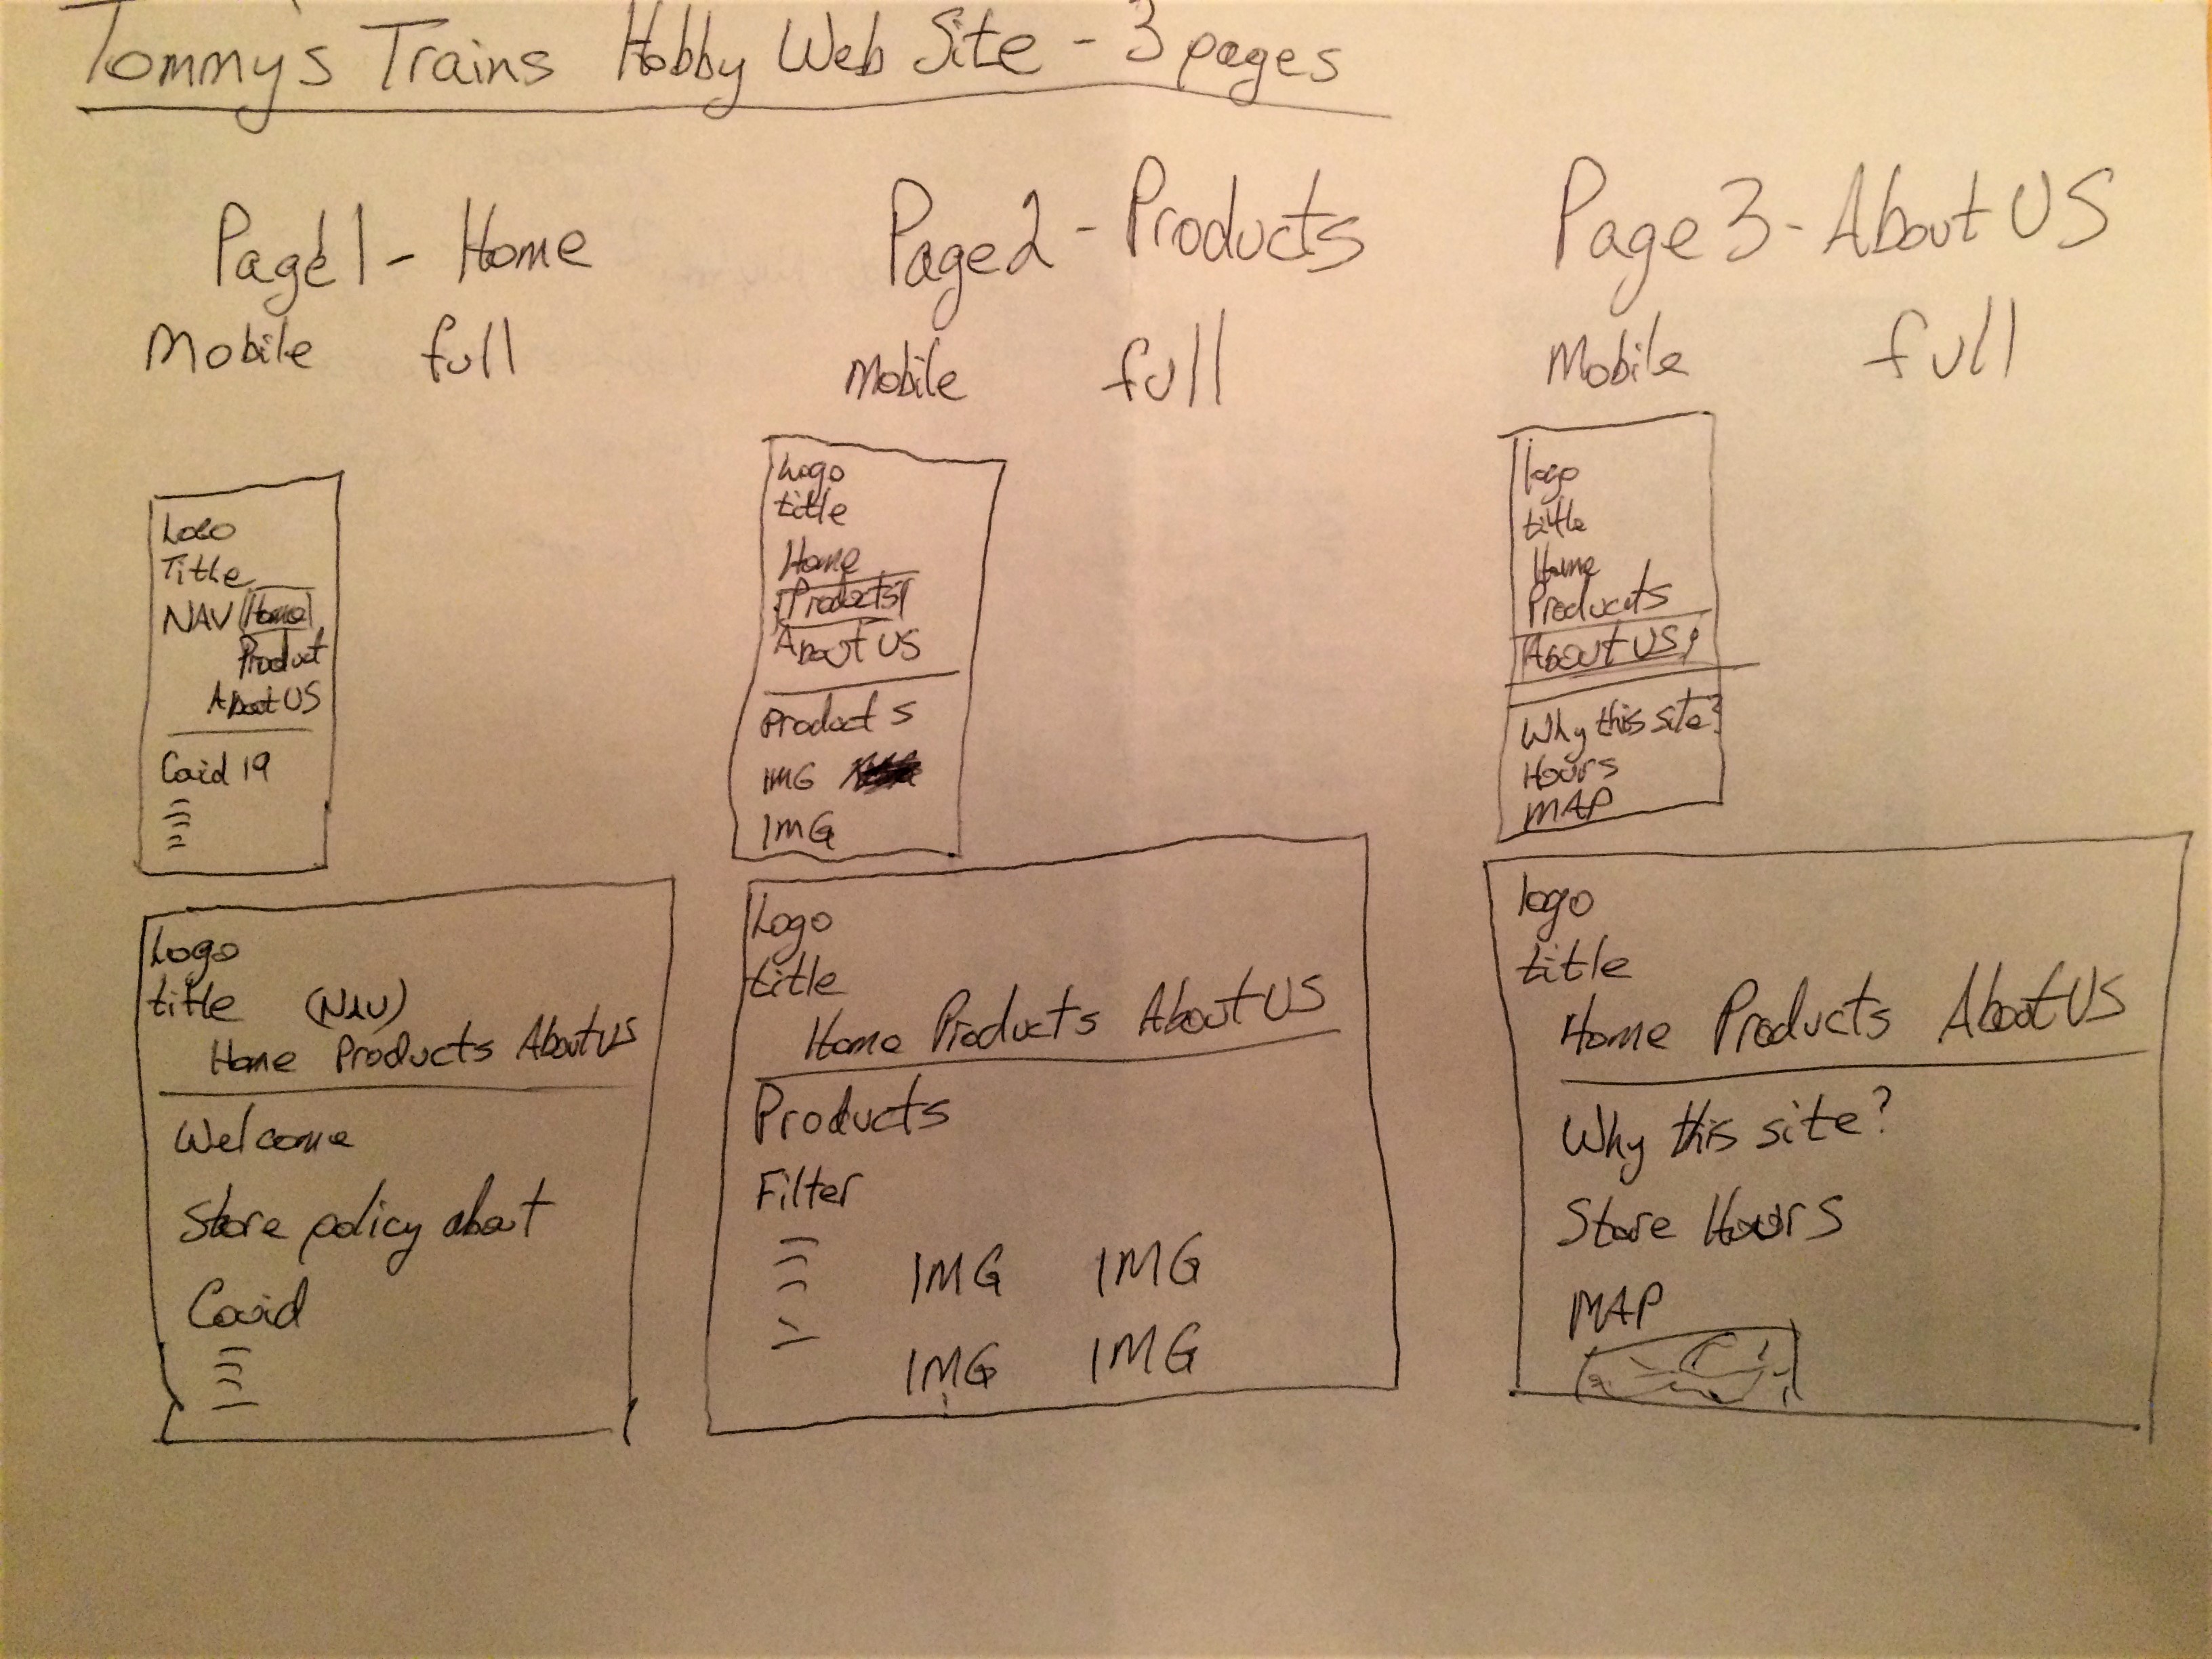 Tommy's Trains Hobby Web Site - 3 pages
Page 1 - Home
Mobile full
Logo
Title
NAV Home
Product
About US
Covid 19
Logo
title (NAV)
Home Products About US
Welcome
Store policy about
Covid
Page 2 - Products
Mobile full
Logo
title
Home
Products
About US
Products
IMG
IMG
Logo
title
Home Products About US
Products
Filter
IMG IMG
IMG IMG
Page 3 - About US
Mobile full
logo
title
Home
Products
About US
Why this site?
Hours
MAP
logo
title
Home Products About US
Why this site?
Store Hours
MAP